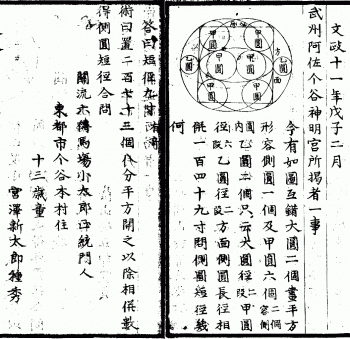 文政十一年戊子二月
武州阿佐个谷神明宮所掲者一事
側圓
甲圓
甲圓
方面
乙圓
甲圓
甲圓
乙圓
甲圓
甲圓
今有如圖互錯大圓二個畫平方
形容側圓一個及甲圓六個二個容側
内乙圓二個只云大圓徑段甲圓
徑六段乙圓徑二段方面側圓長徑相
併一百四十九寸問側圓短徑幾
何
答曰短徑九寸
術曰置二百七十三個
平方開之以除相併數
得側圓短徑合問
關流六傳馬場小太郎正統門人
東都市个谷本村住
十三歳童
宮澤新太郎種秀